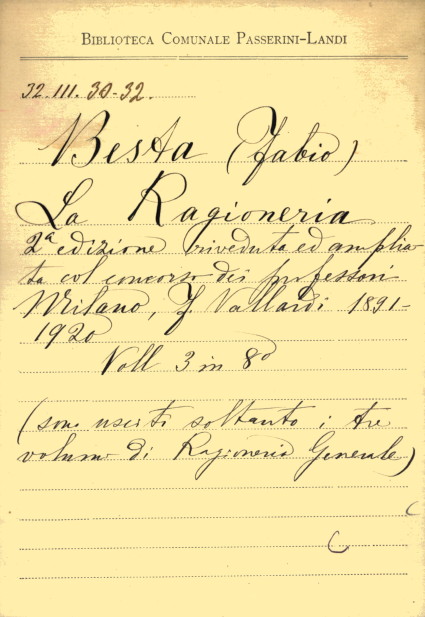 BIBLIOTECA COMUNALE PASSERINI-LANDI
I2.III.30-32.
Besta (Fabio)
La Ragioneria
2ª edizione riveduta ed amplia-
ta col concorso dei professori
Milano, F. Vallardi 1891-
1920
Voll 3 in 8º
(sono usciti soltanto i tre
volumi di Ragioneria Generale)